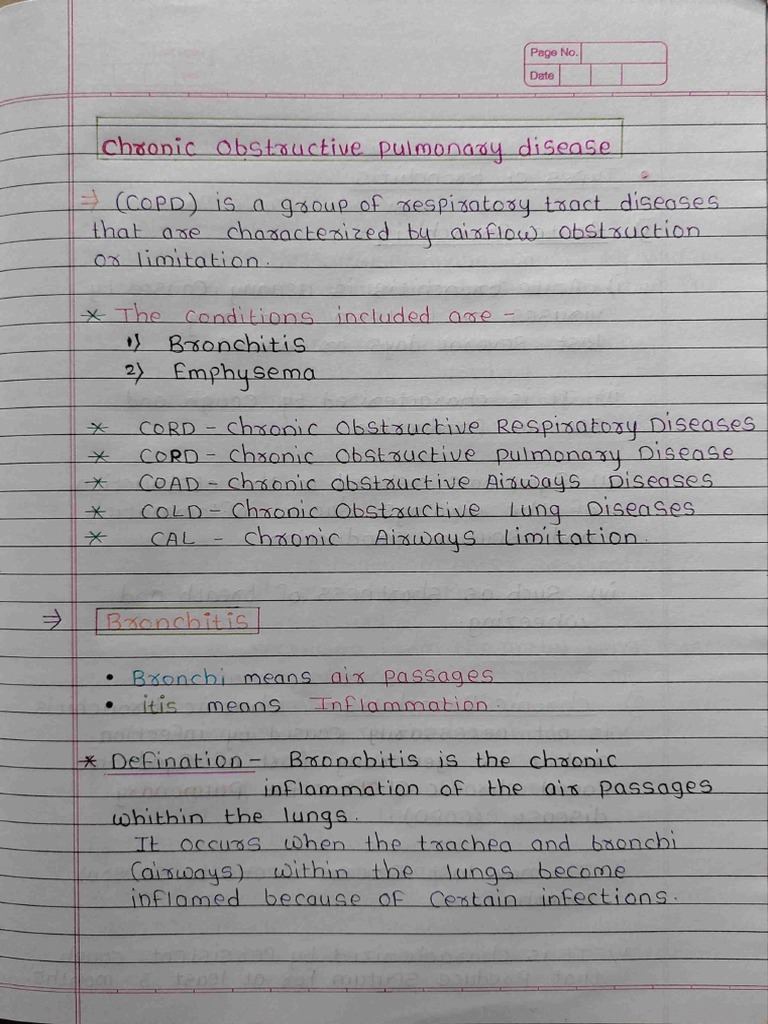 Page No.
Date
Chronic Obstructive pulmonary disease
⇒ (COPD) is a group of respiratory tract diseases
that are characterized by airflow obstruction
or limitation.
* The conditions included are -
1) Bronchitis
2) Emphysema
* CORD - Chronic Obstructive Respiratory Diseases
* COPD - Chronic Obstructive pulmonary Disease
* COAD - Chronic Obstructive Airways Diseases
* COLD - Chronic Obstructive Lung Diseases
* CAL - Chronic Airways Limitation.
⇒ Bronchitis
• Bronchi means air passages
• itis means Inflammation.
* Defination - Bronchitis is the chronic
inflammation of the air passages
whithin the lungs.
It occurs when the trachea and bronchi
(airways) within the lungs become
inflamed because of Certain infections.